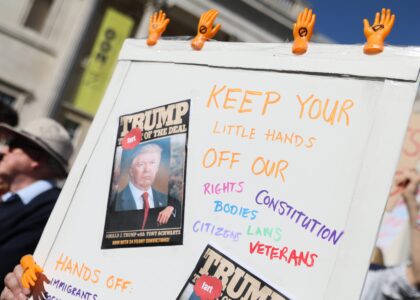 KEEP YOUR
LITTLE HANDS
OFF OUR
RIGHTS
CONSTITUTION
BODIES
LAWS
CITIZENS
VETERANS
TRUMP
fart
OF THE DEAL
DONALD J. TRUMP with TONY SCHWARTZ
NOW WITH 34 FELONY CONVICTIONS!
HANDS OFF:
IMMIGRANTS
TRUMP
fart
200